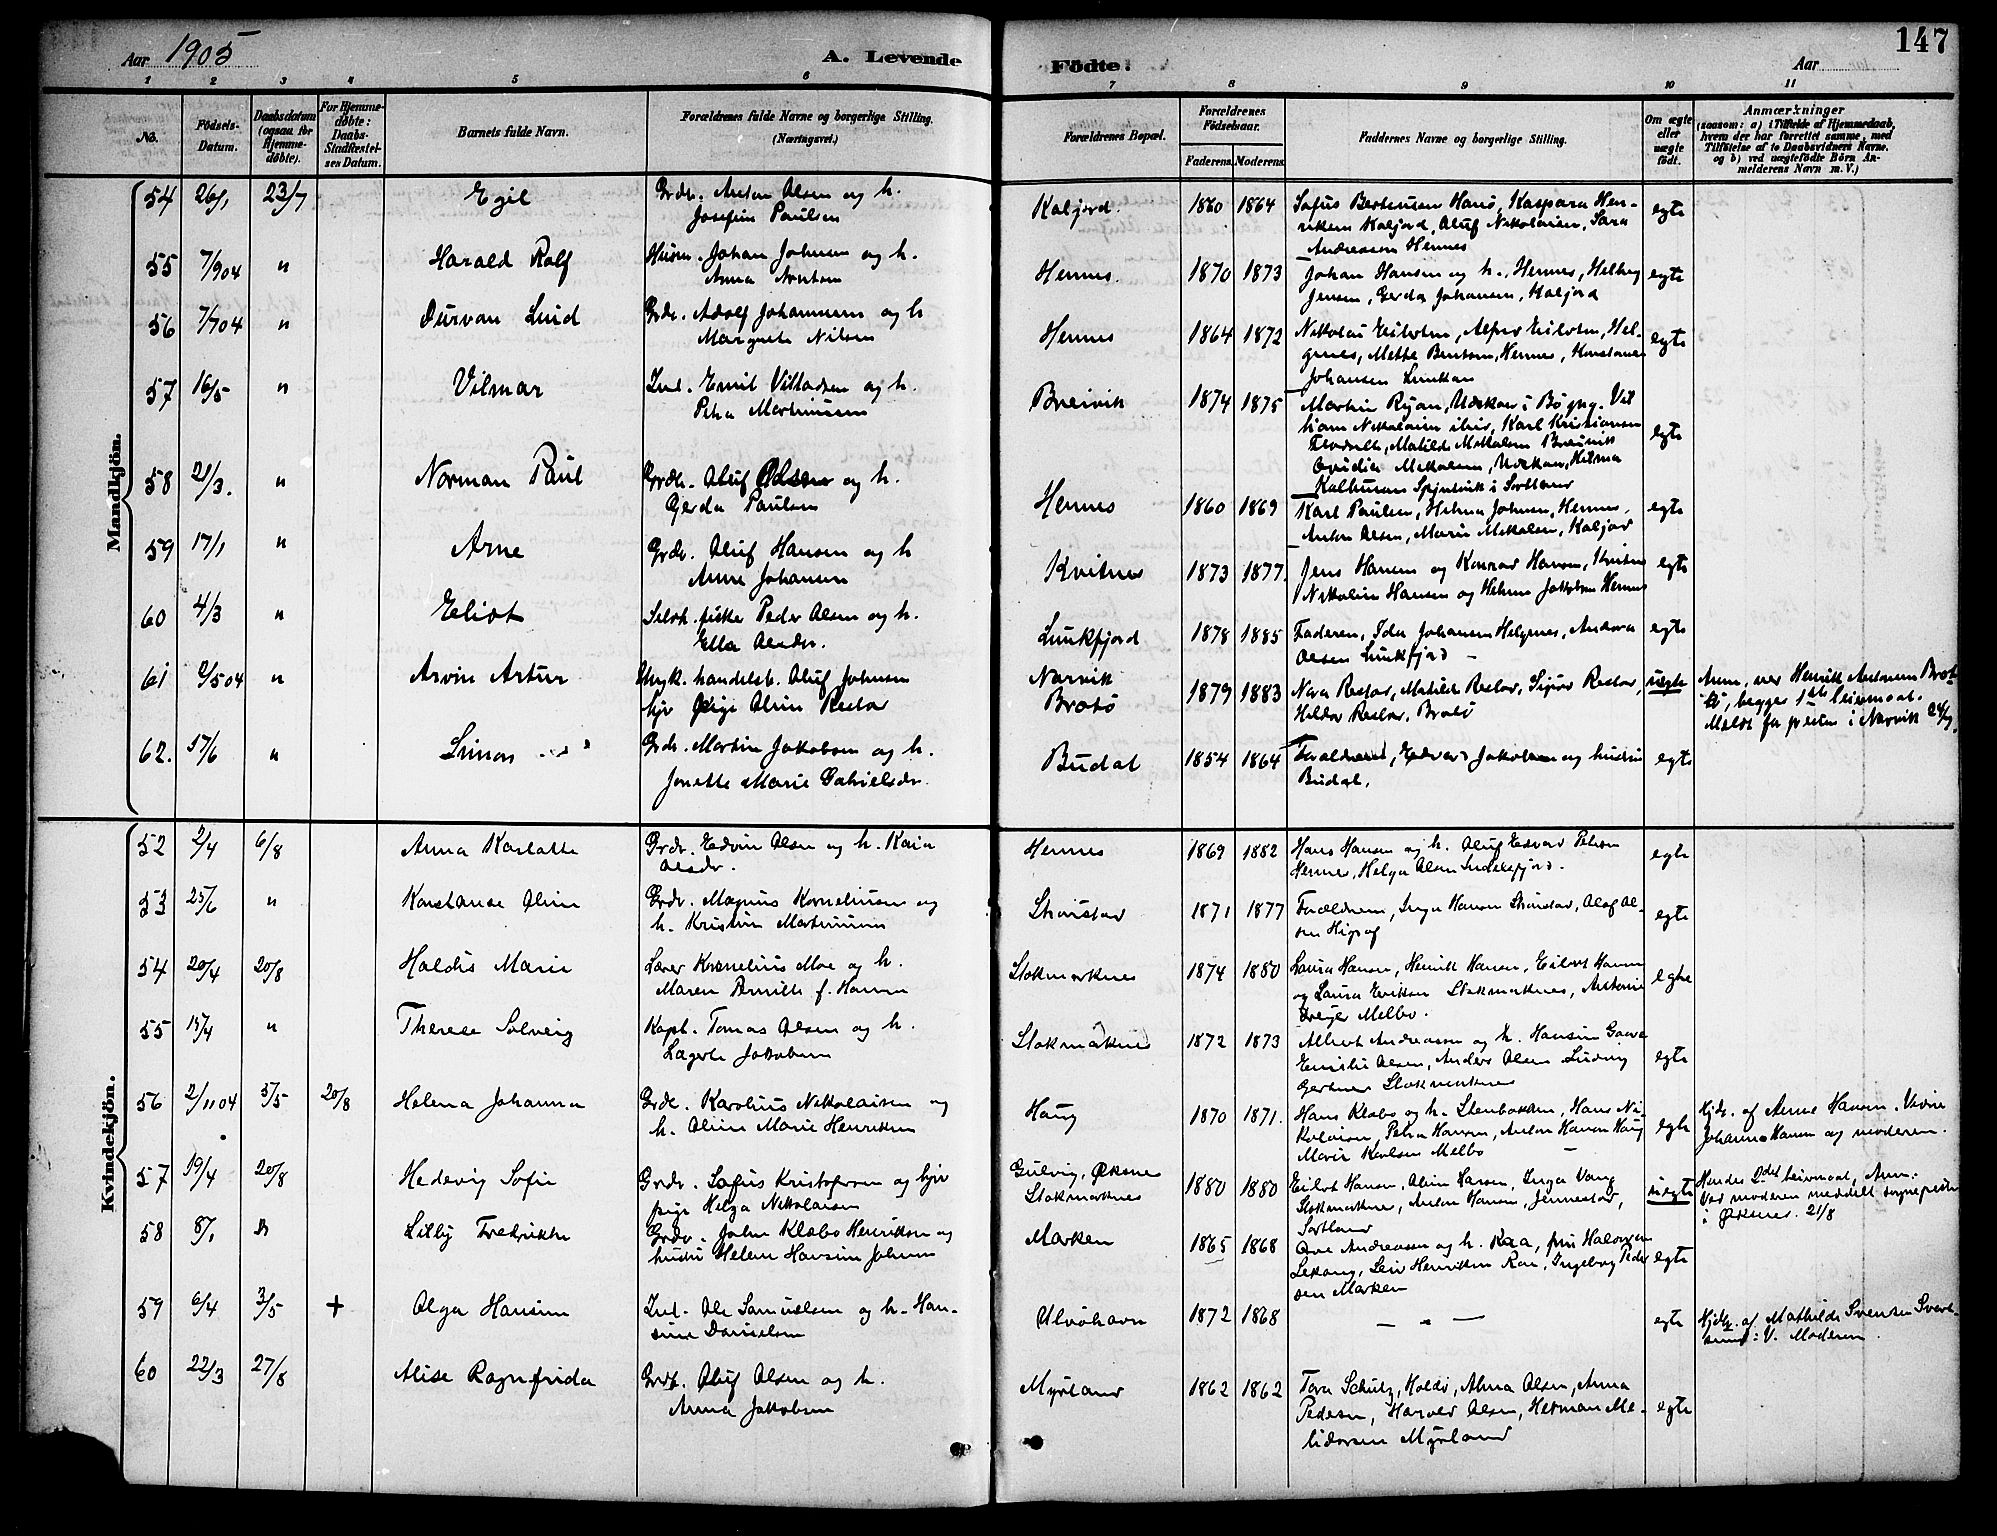 Aar 1905
A. Levende
Födte.
Aar
147
1 2 3 4 5 6 7 8 9 10 11
No.
Födsels-
Datum.
Daabsdatum
(ogsaa for
Hjemme-
döbte).
For Hjemme-
döbte:
Daabs-
Stadfæstel-
ses Datum.
Barnets fulde Navn.
Forældrenes fulde Navne og borgerlige Stilling.
(Næringsvei.)
Forældrenes Bopæl.
Forældrenes
Födselsaar.
Faderens. Moderens.
Faddernes Navne og borgerlige Stilling.
Om ægte
eller
uægte
födt.
Anmærkninger
(saasom: a) i Tilfælde af Hjemmedaab,
hvem der har forrettet samme, med
Tilföielse af to Daabsvidners Navne.
og b) ved uægtefödte Börn An-
melderens Navn m. V.)
Mandkjön.
54 26/1 23/7 Egil Grdr. Anton Olsen og h.
Josefin Paulsen
Kaljord. 1860 1864 Sofus Berteusen Hansö, Kaspara Hen-
riksen Kaljord, Oluf Nikolaisen, Sara
Andreasen Hennes
egte
55 7/904 " Harald Rolf Husm. Johan Johnsen og h.
Anna Arntsen
Hennes. 1870 1873 Johan Hansen og h., Hennes, Helberg
Jensen, Gerda Johansen, Kaljord
egte
56 7/704 " Durvan Lund Grdr. Adolf Johannesen og h
Margrete Nilsen
Hennes 1864 1872 Nikolai Eilertsen, Alfred Eilertsen, Hel-
genes, Mette Bentsen, Hennes, Konstanse
Johansen Lunkan
egte
57 16/5 " Vilmar Ind. Emil Villadsen og h.
Petra Martinusen
Breivik 1874 1875 Martin Ryan, Udskor i Bø, Vil
ham Nikolaisen ibid, Karl Kristiansen
Matilde Mikkalsen Breivik
Ovidia Mikalsen, Udskor, Hilma
i Sortland
egte
58 21/3. " Norman Paul Grdr. Oluf Olsen og h.
Gerda Paulsen
Hennes 1860 1869 Karl Paulsen, Helma Johnsen, Hennes,
Anton Olsen, Marie Mikalsen, Kaljord
egte
59 17/1 " Arne Grdr. Oluf Hansen og h
Anne Johansen
Kvitnes 1873 1877. Jens Hansen og Konrad Hansen, Kvitnes
Nikolin Hansen og Helena Jakobsen Hennes
egte
60 4/3 " Eliot Selvst. fisker Peder Olsen og h.
Ella Olsdr.
Lunkfjord 1878 1885 Faderen, Ida Johansen Helgenes, Andora
Olsen Lunkfjord –
egte
61 2/504 " Arvin Artur handelsb. Oluf Johnsen
pige Oline Restor
Narvik
Brotö 1879 1883 Nora Restor, Matilde Restor, Sigurd Restor,
Hilda Restor. Brotö
uegte
Anm. ved Henrik Antonsen Brot-
tö, begges 1ste leiermaal.
Meldt fra presten i Narvik 24/7.
62. 17/6 " Simon Grdr. Martin Jakobsen og h.
Jonette Marie Gabrielsdr.
Budal 1854 1864 Forældrene, Edvard Jakobsen og hustru
Budal.
egte
Kvindekjön.
52 2/4 6/8 Anna Karlotte Grdr. Edvin Olsen og h. Kaia
Olsdr.
Hennes 1869 1882 Hans Hansen og h. Oluf Edvard Petersen
Hennes, Helga Olsen Indrefjord.
egte
53 25/6 " Konstanse Oline Grdr. Magnus Kornelinsen og
h. Kristine Martinusen
1871 1877 Forældrene, Inga Hansen, Olaf Ol-
sen
egte
54 20/4 20/8 Haldis Marie Lærer Kornelius Moe og h.
Maren Pernille f. Hansen
Stokmarknes 1874 1880 Laura Hansen, Henrik Hansen, Eilert Hansen
og Laura Eriksen Stokmarknes, Antonie
Dreyer Melbo.
egte
55 15/4 " Therese Solveig Kapt. Tomas Olsen og h.
Lagerte Jakobsen
Stokmarknes 1872 1873 Albert Andreasen og h. Hansine Gaare
Emilie Olsen, Anders Olsen Ludvig
Gertner Stokmarknes
egte
56 2/1104 5/5 20/8 Helena Johanna Grdr. Karolius Nikolaisen og
h. Oline Marie Henriksen
Haug 1870 1871. Hans Klæbo og h. Steinbakken, Hans Ni-
kolaisen, Petra Hansen, Anton Hansen Haug
Marie Karlsen Melbo –
egte
Hjdr. af Anne Hansen. Vidne
Johanna Hansen og moderen.
57 19/4 20/8 Hedevig Sofie Grdr. Sofus Kristofersen og
pige Helga Nikolaisen
Gulvig, Øksnes
Stokmarknes 1880 1880 Eilert Hansen, Oline Larsen, Inga Vang
Stokmarknes, Anton Hansen, Jennestad,
Sortland
uegte
Hendes 2det leiermaal, Anm.
ved moderen meddelt sognepresten
i Øksnes. 21/8
58 8/1 " Lilly Fredrikke Grdr. John Klæbo Henriksen og
hustru Helene Hansine Johnsen
Marken 1865 1868 Ove Andreassen og h. Raa,
Lekang, Leiv Henriksen Raa, Ingeborg Peder
sen Marken
egte
59 6/4 3/5 + Olga Hansine Ind. Ole Samuelsen og h. Han-
sine Danielsen
Ulvöhavn 1872 1868 — " —
egte
Hjdb. af Mathilde Svensen Svart-
sund: V. Moderen.
60 22/3 27/8 Alise Ragnfrida Grdb. Oluf Olsen og h.
Anna Jakobsen
Myrland 1862 1862 Tora Schulz, Holdö, Alma Olsen, Anna
Pedersen, Harald Olsen, Herman Me-
lidorsen Myrland
egte